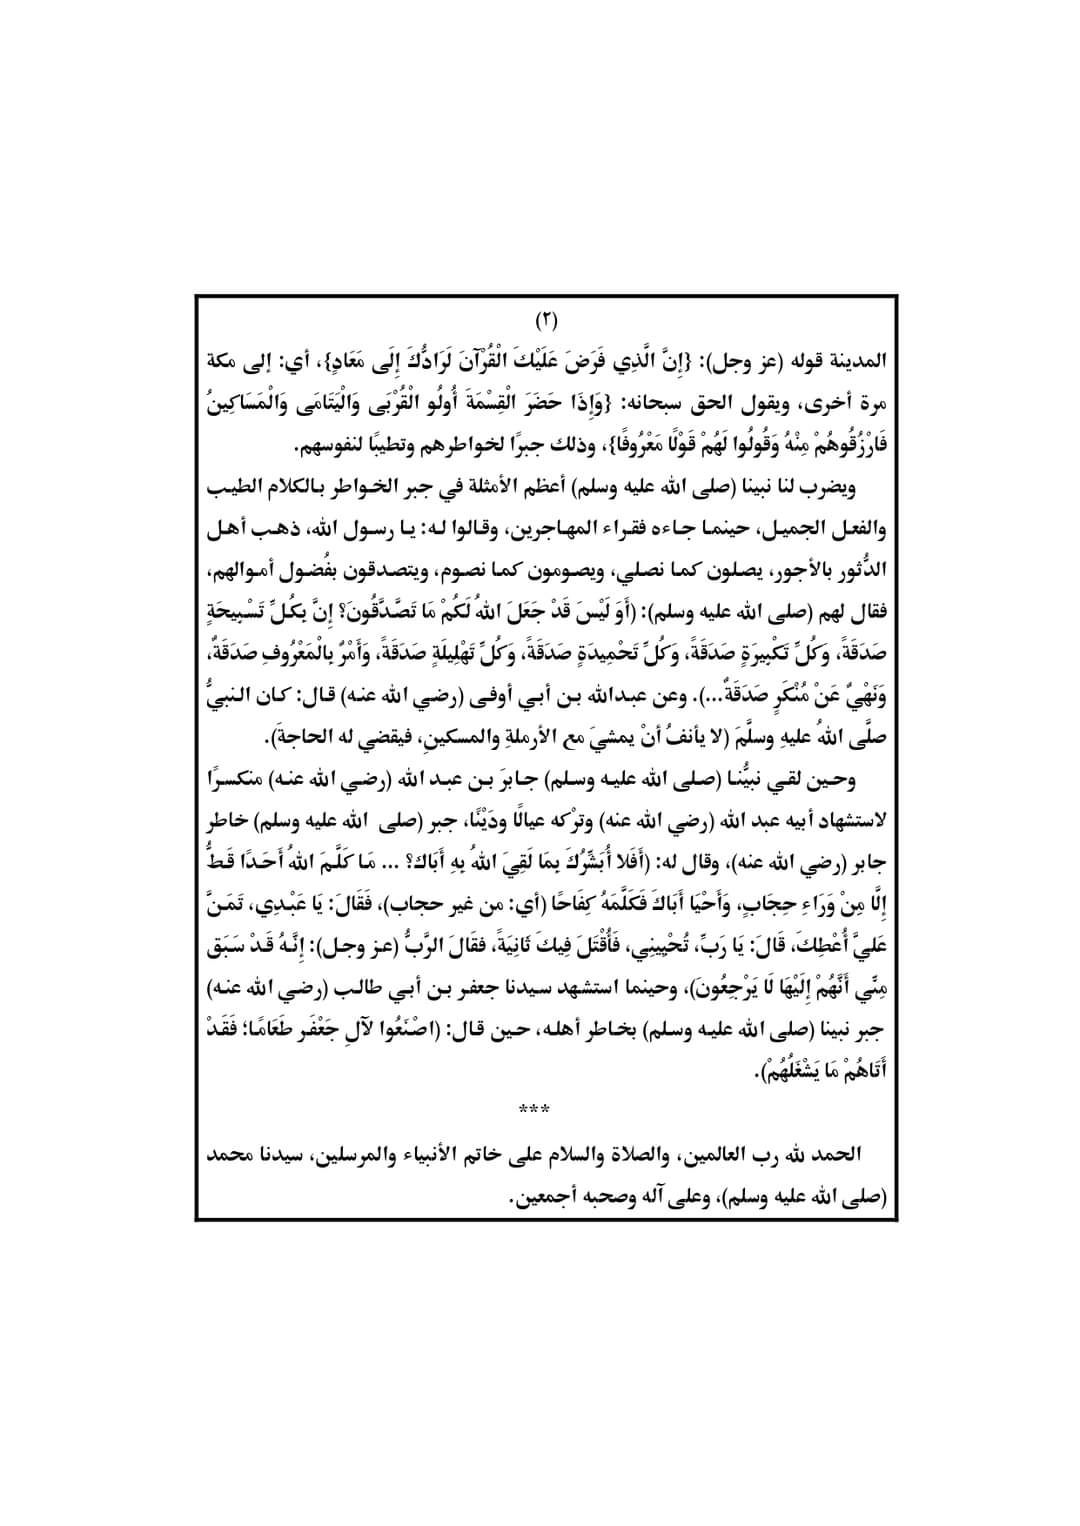 (٢)
المدينة قوله (عز وجل): {إِنَّ الَّذِي فَرَضَ عَلَيْكَ الْقُرْآنَ لَرَادُّكَ إِلَى مَعَادٍ}، أي: إلى مكة
مرة أخرى، ويقول الحق سبحانه: {وَإِذَا حَضَرَ الْقِسْمَةَ أُولُو الْقُرْبَى وَالْيَتَامَى وَالْمَسَاكِينُ
فَارْزُقُوهُمْ مِنْهُ وَقُولُوا لَهُمْ قَوْلًا مَعْرُوفًا}، وذلك جبرًا لخواطرهم وتطيبًا لنفوسهم.
ويضرب لنا نبينا (صلى الله عليه وسلم) أعظم الأمثلة في جبر الخواطر بالكلام الطيب
والفعل الجميل، حينما جاءه فقراء المهاجرين، وقالوا له: يا رسول الله، ذهب أهل
الدُّثور بالأجور، يصلون كما نصلي، ويصومون كما نصوم، ويتصدقون بفُضول أموالهم،
فقال لهم (صلى الله عليه وسلم): (أَوَ لَيْسَ قَدْ جَعَلَ اللهُ لَكُمْ مَا تَصَّدَّقُونَ؟ إِنَّ بِكُلِّ تَسْبِيحَةٍ
صَدَقَةً، وَكُلِّ تَكْبِيرَةٍ صَدَقَةً، وَكُلِّ تَحْمِيدَةٍ صَدَقَةً، وَكُلِّ تَهْلِيلَةٍ صَدَقَةً، وَأَمْرٌ بِالْمَعْرُوفِ صَدَقَةٌ،
وَنَهْيٌ عَنْ مُنْكَرٍ صَدَقَةٌ...). وعن عبدالله بن أبي أوفى (رضي الله عنه) قال: كان النبيُّ
صلَّى اللهُ عليهِ وسلَّمَ (لا يأنفُ أنْ يمشيَ مع الأرملةِ والمسكينِ، فيقضي له الحاجةَ).
وحين لقي نبيُّنا (صلى الله عليه وسلم) جابرَ بن عبد الله (رضي الله عنه) منكسرًا
لاستشهاد أبيه عبد الله (رضي الله عنه) وترْكه عيالًا ودَيْنًا، جبر (صلى الله عليه وسلم) خاطر
جابر (رضي الله عنه)، وقال له: (أَفَلا أُبَشِّرُكَ بِمَا لَقِيَ اللهُ بِهِ أَبَاكَ؟ ... مَا كَلَّمَ اللهُ أَحَدًا قَطُّ
إِلَّا مِنْ وَرَاءِ حِجَابٍ، وَأَحْيَا أَبَاكَ فَكَلَّمَهُ كِفَاحًا (أي: من غير حجاب)، فَقَالَ: يَا عَبْدِي، تَمَنَّ
عَلَيَّ أُعْطِكَ، قَالَ: يَا رَبِّ، تُحْيِينِي، فَأُقْتَلَ فِيكَ ثَانِيَةً، فقَالَ الرَّبُّ (عز وجل): إِنَّهُ قَدْ سَبَق
مِنِّي أَنَّهُمْ إِلَيْهَا لَا يَرْجِعُونَ)، وحينما استشهد سيدنا جعفر بن أبي طالب (رضي الله عنه)
جبر نبينا (صلى الله عليه وسلم) بخاطر أهله، حين قال: (اصْنَعُوا لآلِ جَعْفَر طَعَامًا؛ فَقَدْ
أَتَاهُمْ مَا يَشْغَلُهُمْ).
***
الحمد لله رب العالمين، والصلاة والسلام على خاتم الأنبياء والمرسلين، سيدنا محمد
(صلى الله عليه وسلم)، وعلى آله وصحبه أجمعين.